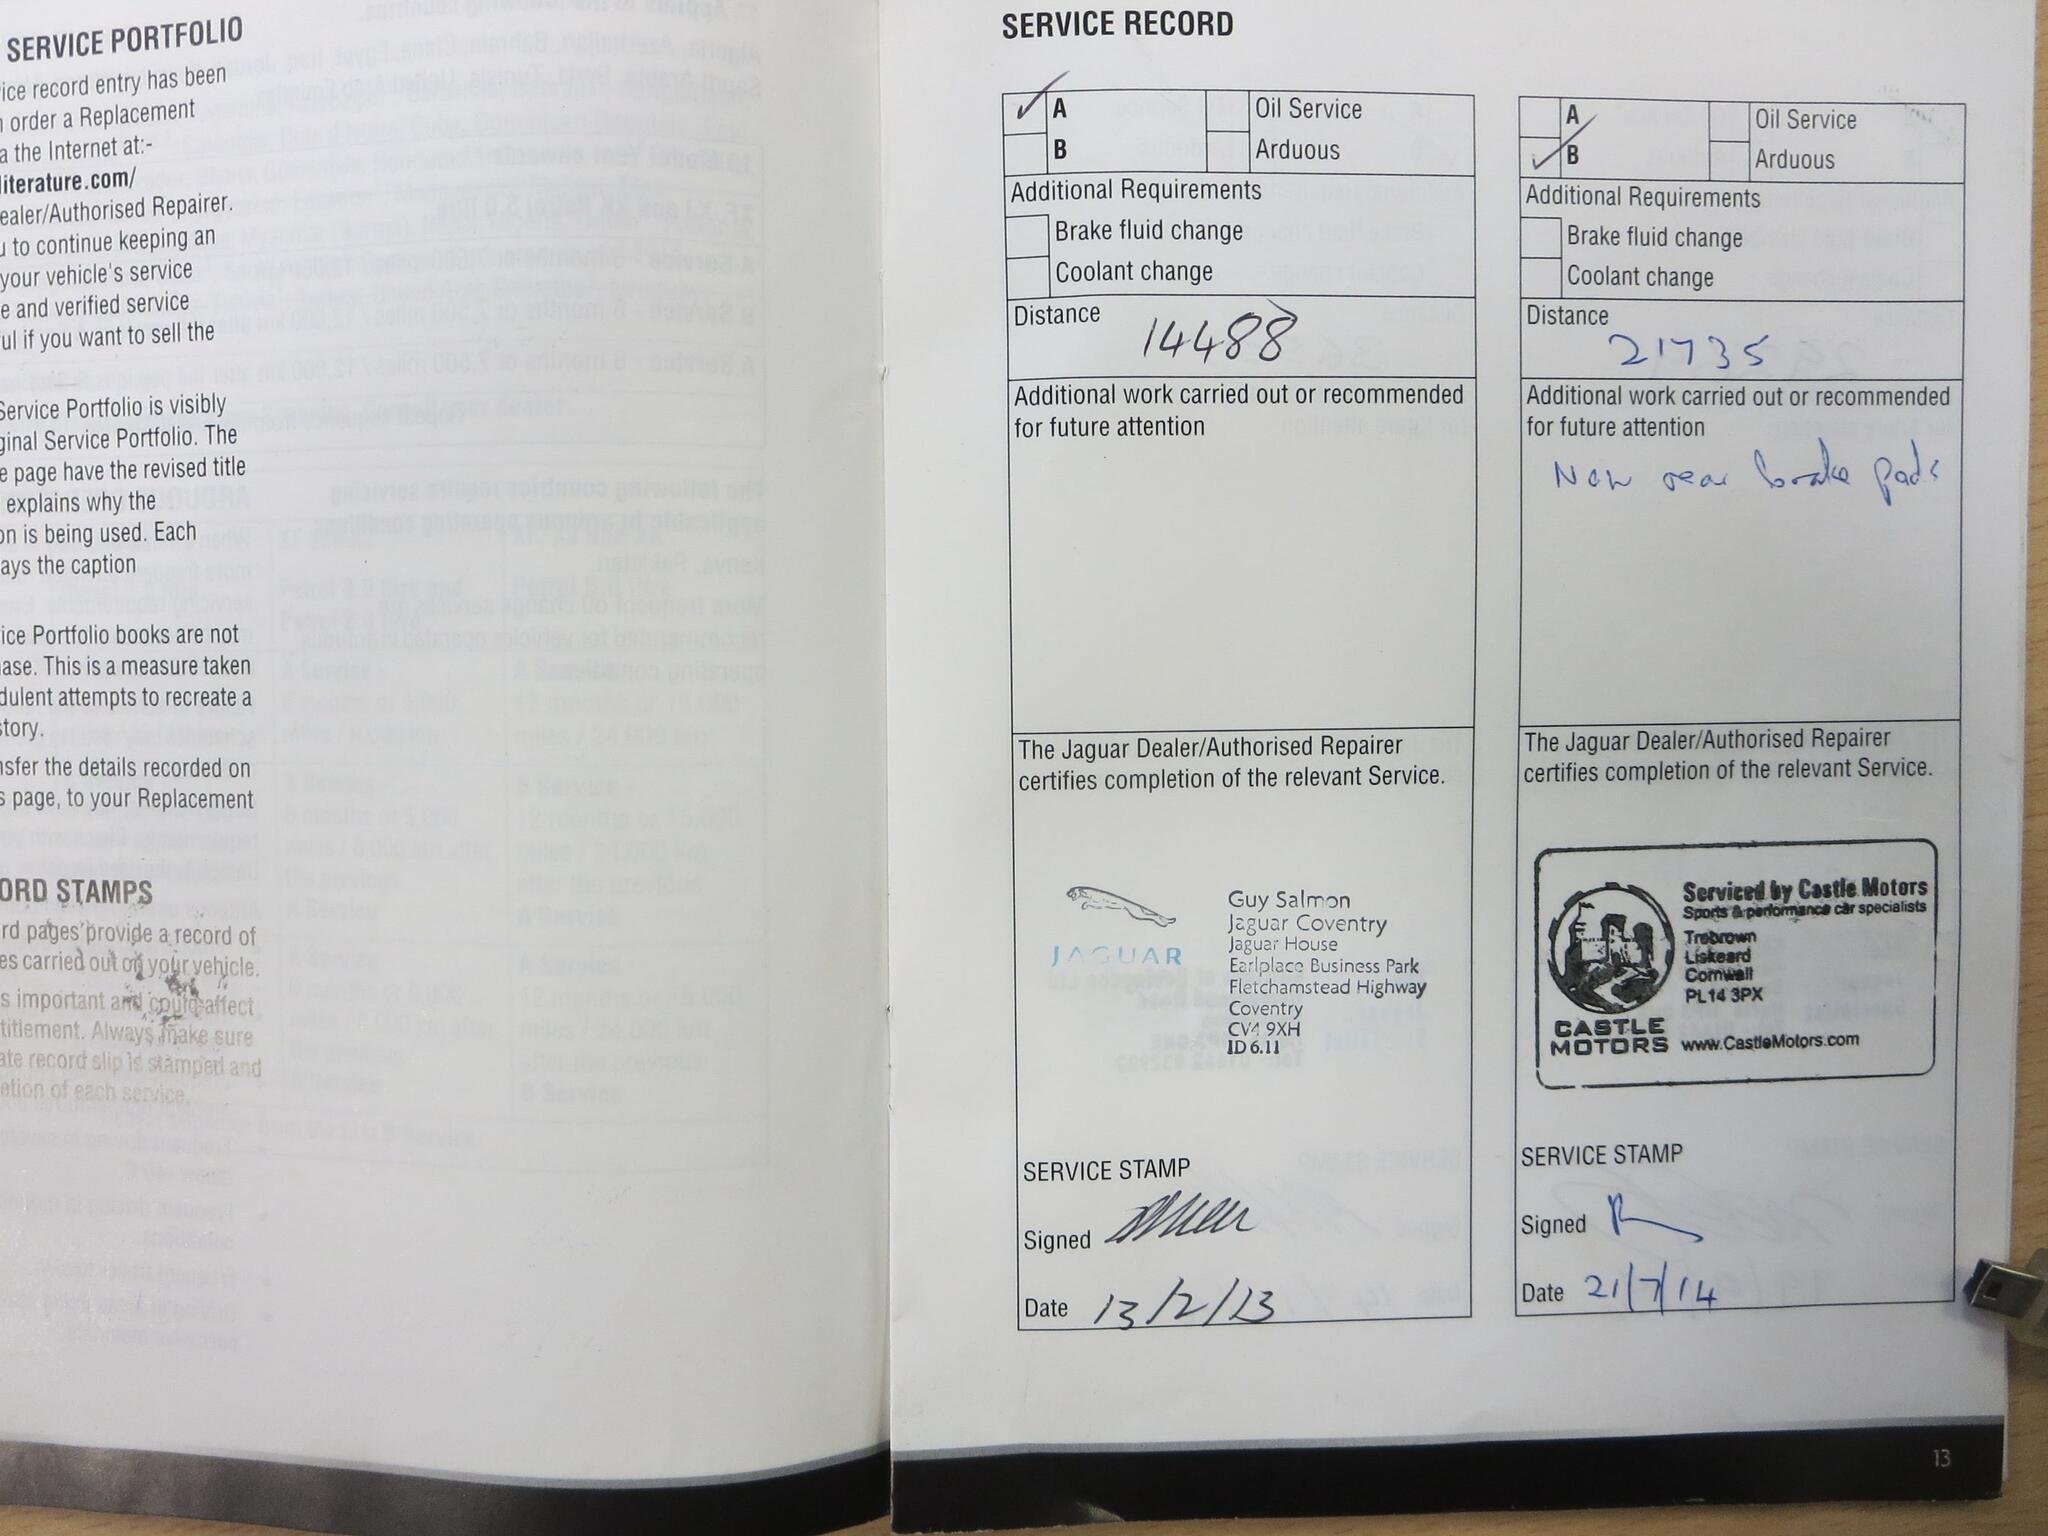 SERVICE PORTFOLIO
ice record entry has been
n order a Replacement
a the Internet at:-
literature.com/
ealer/Authorised Repairer.
u to continue keeping an
your vehicle's service
e and verified service
ul if you want to sell the
Service Portfolio is visibly
ginal Service Portfolio. The
e page have the revised title
explains why the
on is being used. Each
ays the caption
ice Portfolio books are not
ase. This is a measure taken
dulent attempts to recreate a
story.
nsfer the details recorded on
s page, to your Replacement
ORD STAMPS
rd pages provide a record of
es carried out on your vehicle.
s important and could affect
titlement. Always make sure
ate record slip is stamped and
etion of each service.
SERVICE RECORD
A
Oil Service
B
Arduous
Additional Requirements
Brake fluid change
Coolant change
Distance
14488
Additional work carried out or recommended
for future attention
The Jaguar Dealer/Authorised Repairer
certifies completion of the relevant Service.
JAGUAR
Guy Salmon
Jaguar Coventry
Jaguar House
Earlplace Business Park
Fletchamstead Highway
Coventry
CV4 9XH
ID 6.11
SERVICE STAMP
Signed
Date 13/2/13
A
Oil Service
B
Arduous
Additional Requirements
Brake fluid change
Coolant change
Distance
21735
Additional work carried out or recommended
for future attention
New rear brake pads
The Jaguar Dealer/Authorised Repairer
certifies completion of the relevant Service.
Serviced by Castle Motors
Sports & performance car specialists
Trebrown
Liskeard
Cornwall
PL14 3PX
CASTLE
MOTORS
www.CastleMotors.com
SERVICE STAMP
Signed
Date 21/7/14
13